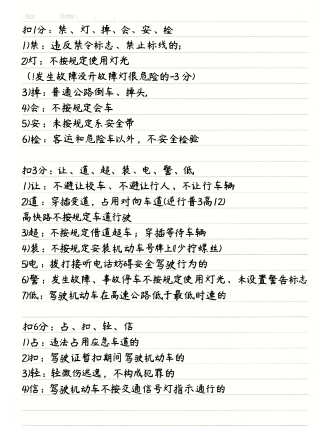 No.
Date:
扣1分：禁、灯、掉、会、安、检
1)禁：违反禁令标志、禁止标线的；
2)灯：不按规定使用灯光
(!发生故障没开故障灯很危险的-3分)
3)掉：普通公路倒车、掉头，
4)会：不按规定会车
5)安：未按规定系安全带
6)检：客运和危险车以外，不安全检验
扣3分：让、道、超、装、电、警、低
1)让：不避让校车、不避让行人、不让行车辆
2)道：穿插变道，占用对向车道(逆行普3高12)
高快路不按规定车道行驶
3)超：不按规定借道超车；穿插等待车辆
4)装：不按规定安装机动车号牌上(少拧螺丝)
5)电：拨打接听电话妨碍安全驾驶行为的
6)警：发生故障、事故停车不按规定使用灯光、未设置警告标志
7)低：驾驶机动车在高速公路低于最低时速的
扣6分：占、扣、轻、信
1)占：违法占用应急车道的
2)扣：驾驶证暂扣期间驾驶机动车的
3)轻：轻微伤逃逸，不构成犯罪的
4)信：驾驶机动车不按交通信号灯指示通行的